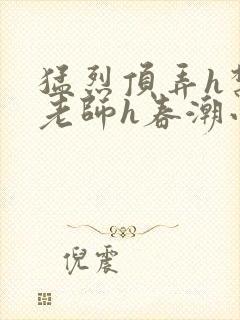 猛烈頂弄h
老師h春潮
倪震